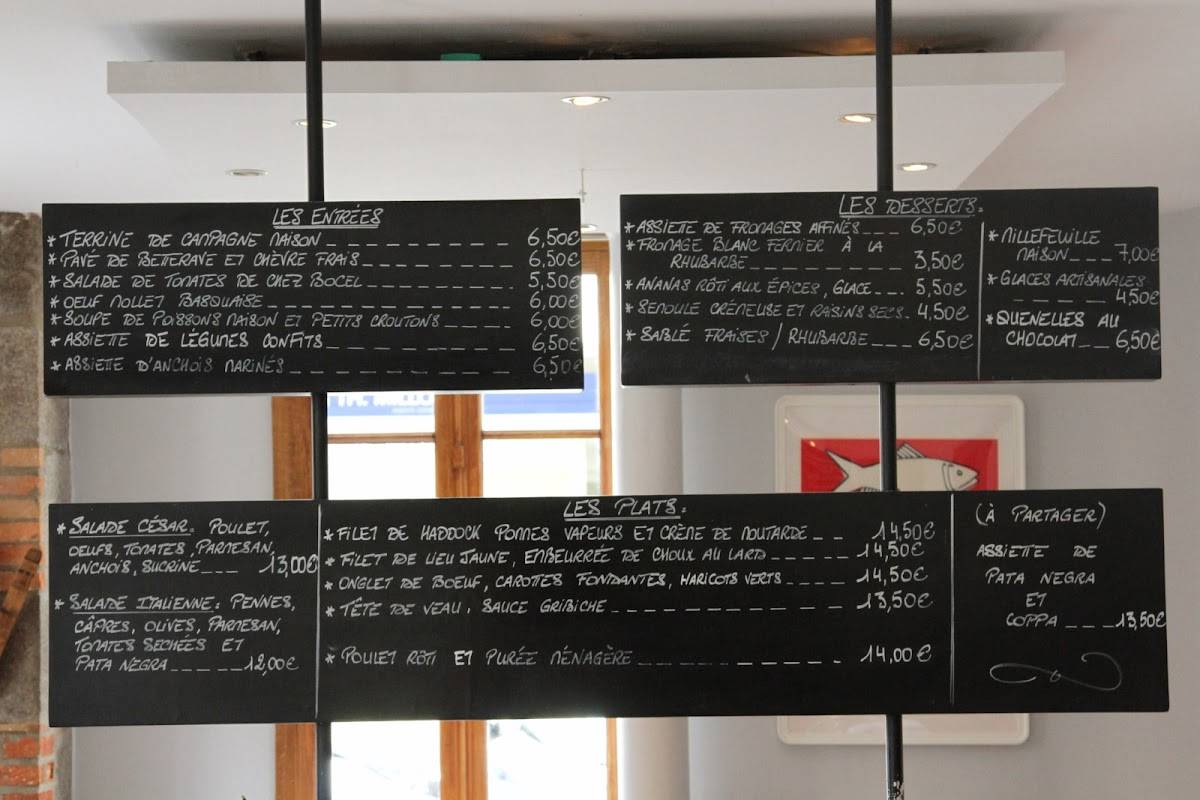 LES ENTRÉES
* TERRINE DE CAMPAGNE MAISON _ _ _ _ _ _ _ _ _ _ 6,50€
* PAVÉ DE BETTERAVE ET CHÈVRE FRAIS _ _ _ _ _ _ _ _ 6,50€
* SALADE DE TOMATES DE CHEZ BOCEL _ _ _ _ _ _ _ _ 5,50€
* OEUF MOLLET BASQUAISE _ _ _ _ _ _ _ _ _ _ _ _ 6,00€
* SOUPE DE POISSONS MAISON ET PETITS CROUTONS _ _ _ _ 6,00€
* ASSIETTE DE LÉGUMES CONFITS _ _ _ _ _ _ _ _ _ _ 6,50€
* ASSIETTE D'ANCHOIS MARINÉS _ _ _ _ _ _ _ _ _ _ _ 6,50€
LES DESSERTS.
* ASSIETTE DE FROMAGES AFFINÉS _ _ _ 6,50€
* FROMAGE BLANC FERMIER À LA
RHUBARBE _ _ _ _ _ _ _ _ _ 3,50€
* ANANAS RÔTI AUX ÉPICES, GLACE _ _ _ 5,50€
* SEMOULE CRÉMEUSE ET RAISINS SECS. 4,50€
* SABLÉ FRAISES / RHUBARBE _ _ _ 6,50€
* MILLEFEUILLE
MAISON _ _ _ 7,00€
* GLACES ARTISANALES
_ _ _ _ _ _ 4,50€
* QUENELLES AU
CHOCOLAT _ _ 6,50€
* SALADE CÉSAR: POULET,
OEUFS, TOMATES, PARMESAN,
ANCHOIS, SUCRINE _ _ _ 13,00€
* SALADE ITALIENNE: PENNES,
CÂPRES, OLIVES, PARMESAN,
TOMATES SECHÉES ET
PATA NEGRA _ _ _ _ _ 12,00€
LES PLATS.
* FILET DE HADDOCK POMMES VAPEURS ET CRÈME DE MOUTARDE _ _ 14,50€
* FILET DE LIEU JAUNE, EMBEURRÉE DE CHOUX AU LARD _ _ _ _ 14,50€
* ONGLET DE BOEUF, CAROTTES FONDANTES, HARICOTS VERTS _ _ _ _ 14,50€
* TÊTE DE VEAU, SAUCE GRIBICHE _ _ _ _ _ _ _ _ _ _ _ 13,50€
* POULET RÔTI ET PURÉE MÉNAGÈRE _ _ _ _ _ _ _ _ _ _ 14,00€
(À PARTAGER)
ASSIETTE DE
PATA NEGRA
ET
COPPA _ _ _ 13,50€